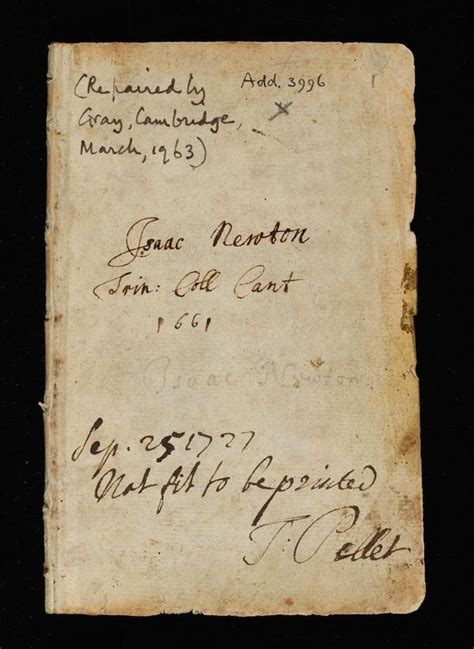 (Repaired by
Gray, Cambridge,
March, 1963)
Add. 3996
Isaac Newton
Trin: Coll Cant
1661
Isaac Newton
Sep. 25 1727
Not fit to be printed
T: Pellet